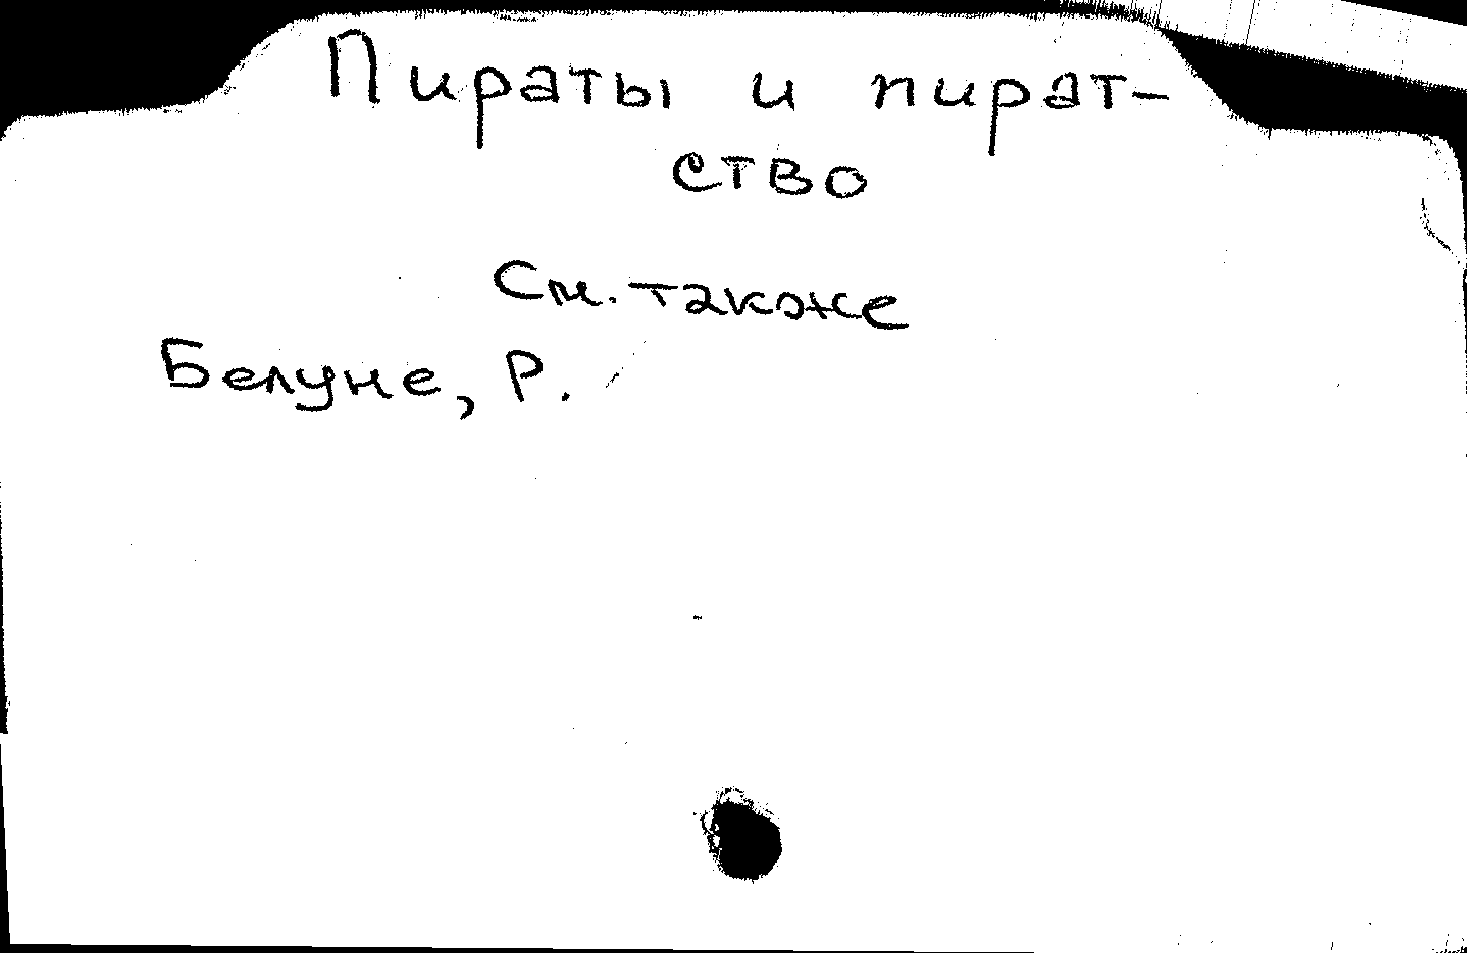 Пираты и пират-
ство
См. также
Белуне, Р.